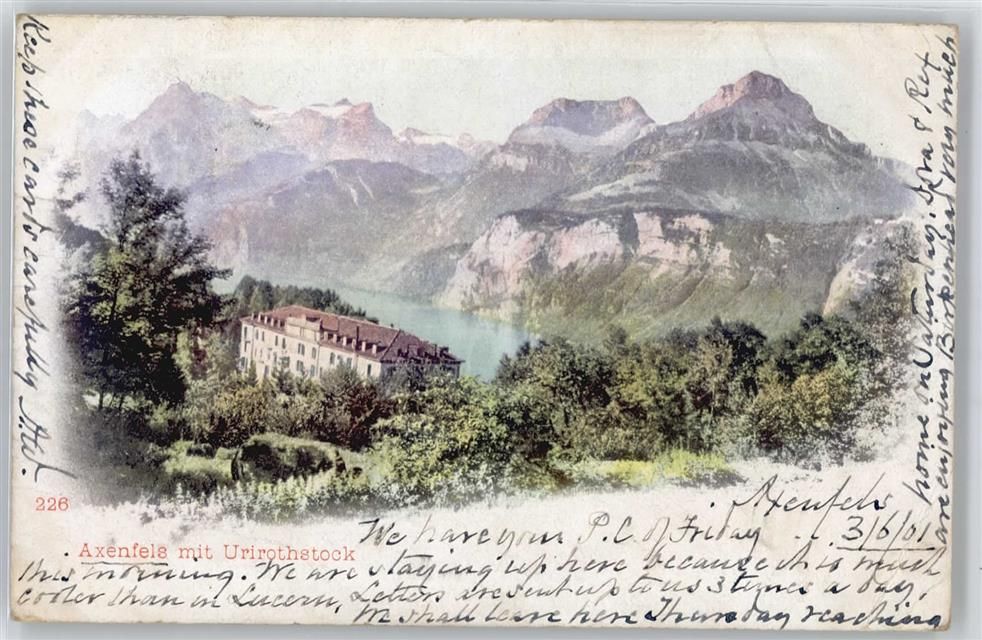 Axenfels
3/6/01
We have your P.C. of Friday
this morning. We are staying up here because it is much
cooler than in Lucern, Letters are sent up to us 3 times a day,
We shall leave here Thursday reaching
home on Saturday. Ira & Rex
are enjoying very much
Keep these cards carefully
226
Axenfels mit Urirothstock